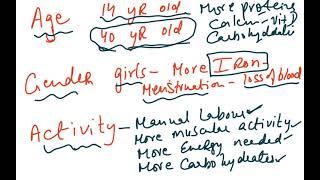 Age 14 yR old More proteins
40 yR old Calcium - vit D
Carbohydrates
Gender girls - More IRon -
Menstruation - loss of blood
Activity - Manual Labour
More muscular activity
More Energy needed
More Carbohydrates